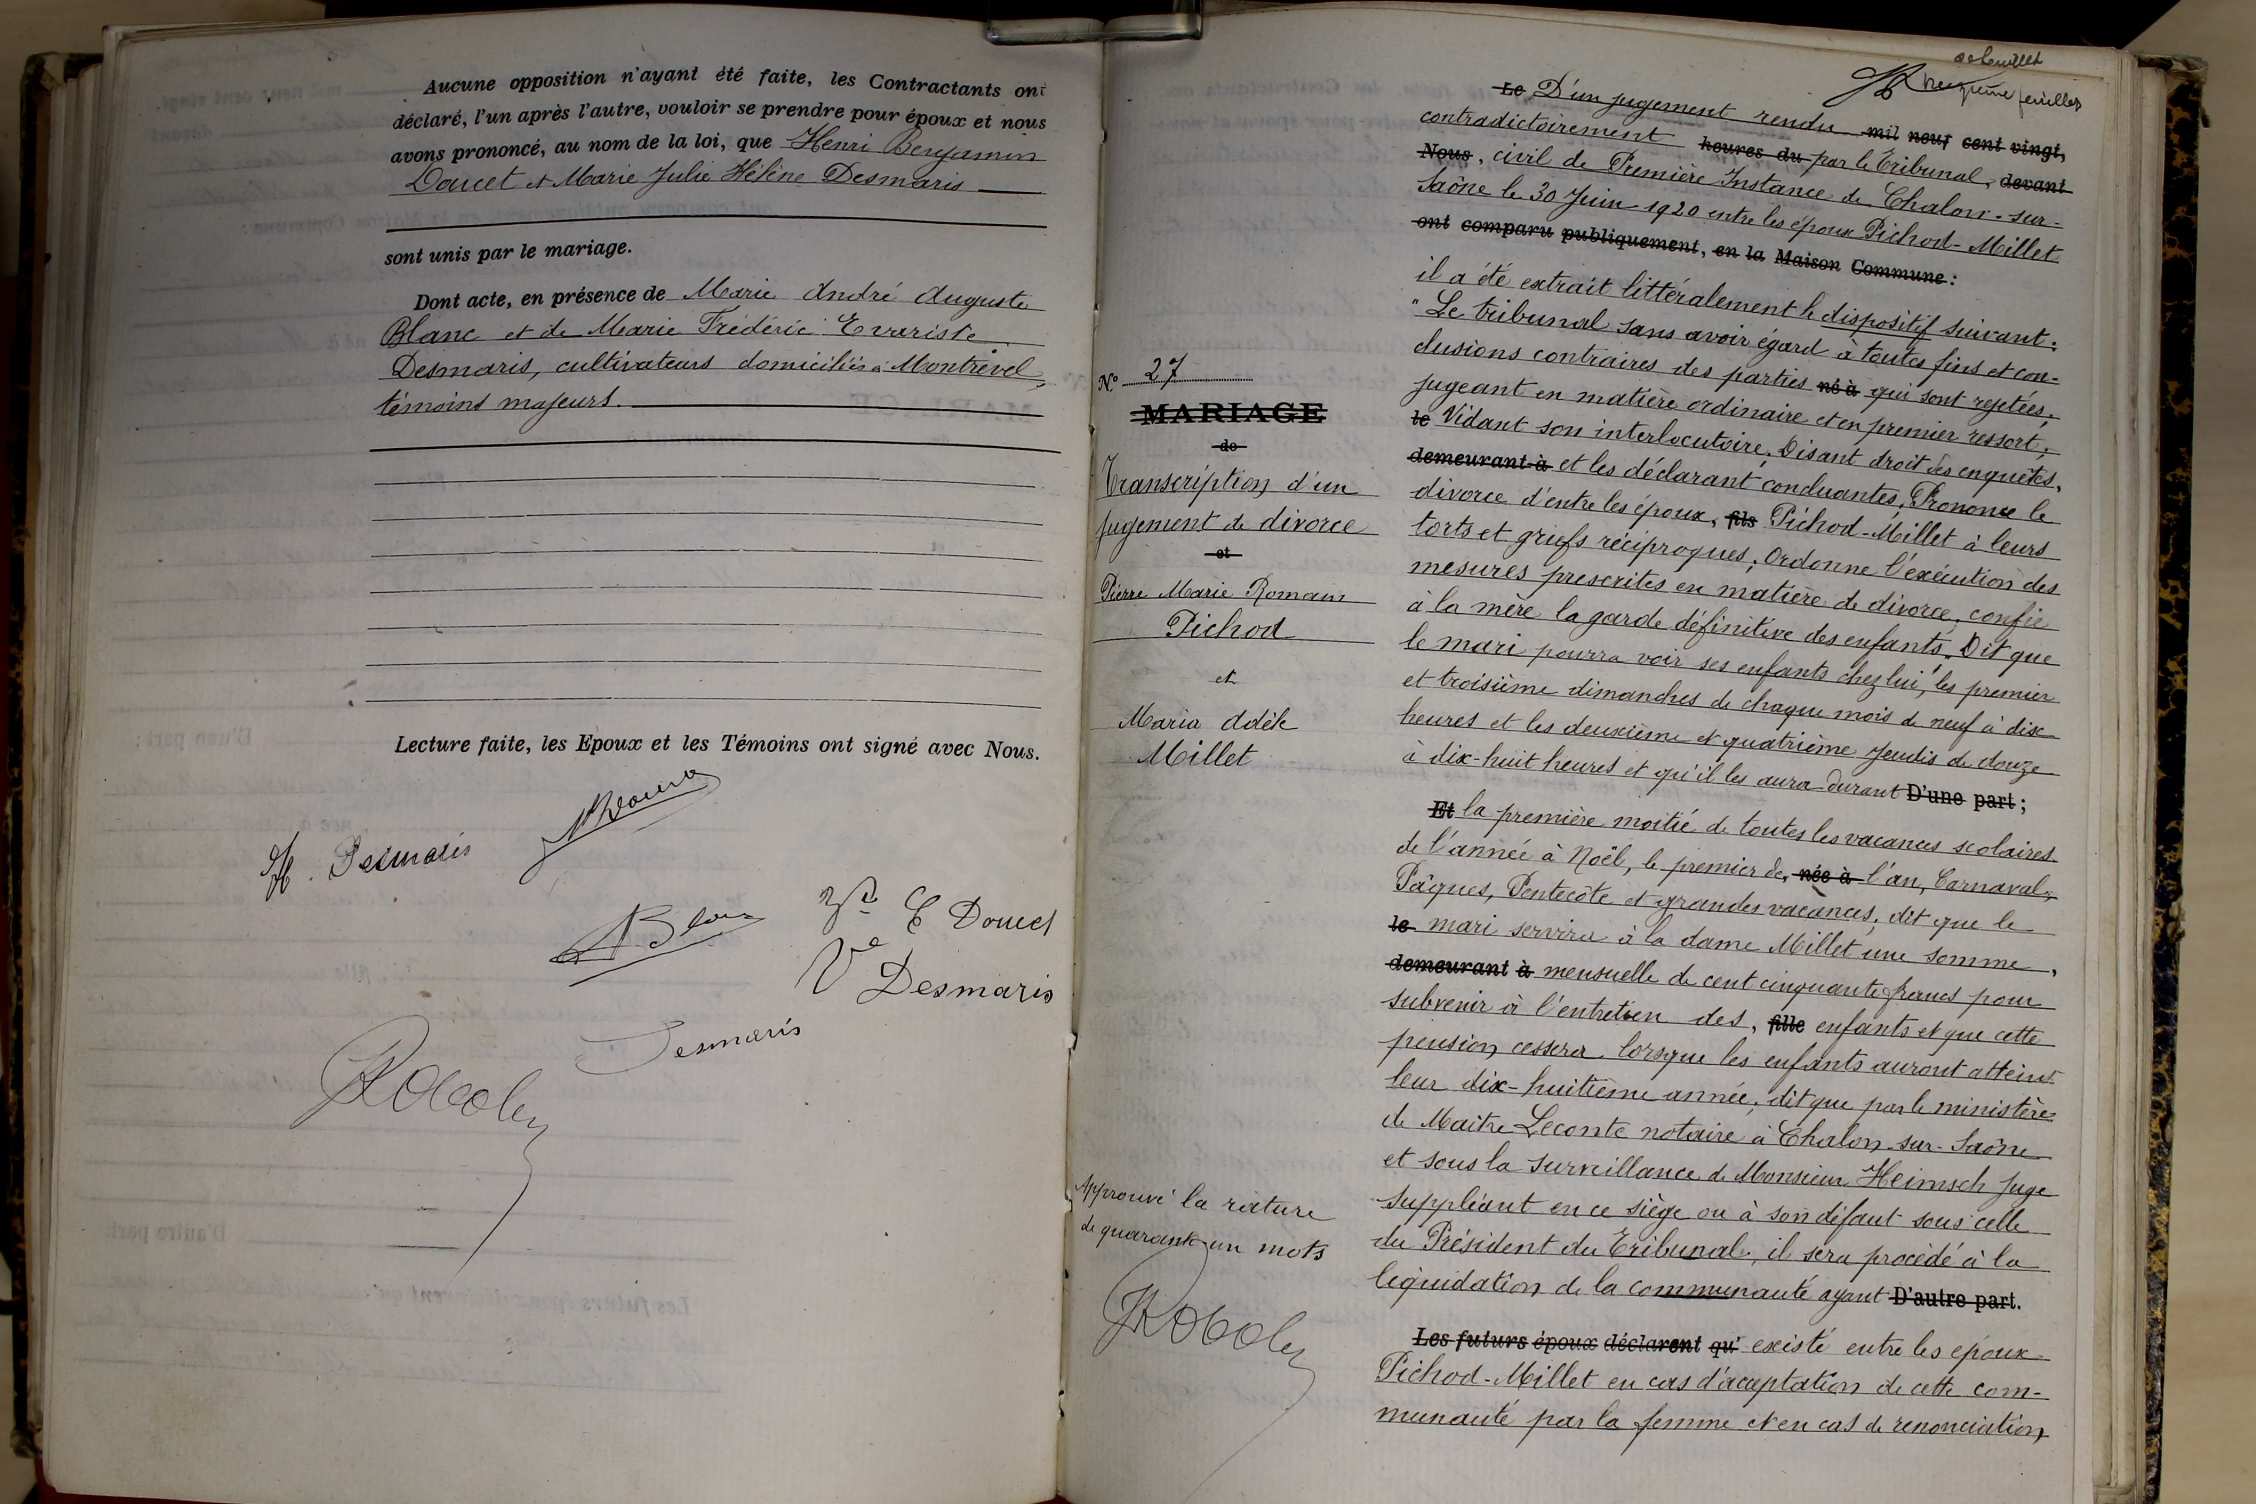 Aucune opposition n'ayant été faite, les Contractants ont
déclaré, l'un après l'autre, vouloir se prendre pour époux et nous
avons prononcé, au nom de la loi, que Henri Benjamin
Doucet et Marie Julie Hélène Desmaris
sont unis par le mariage.
Dont acte, en présence de Marie André Auguste
Blanc et de Marie Frédéric Evariste
Desmaris, cultivateurs domiciliés à Montrevel,
témoins majeurs.
Lecture faite, les Epoux et les Témoins ont signé avec Nous.
H. Desmaris
A Blanc
Vve C Doucet
Ve Desmaris
Desmaris
N° 27
MARIAGE
de
Transcription d'un
jugement de divorce
et
Pierre Marie Romain
Pichod
et
Maria Adèle
Millet
Approuvé la rature
de quarante-un mots
feuillet
Le D'un jugement rendu mil neuf cent vingt,
contradictoirement heures du par le Tribunal, devant
Nous, civil de Première Instance de Chalon-sur-
Saône le 30 Juin 1920 entre les époux Pichod-Millet
ont comparu publiquement, en la Maison Commune :
il a été extrait littéralement le dispositif suivant :
" Le tribunal sans avoir égard à toutes fins et con-
clusions contraires des parties né à qui sont rejetées;
jugeant en matière ordinaire et en premier ressort;
le Vidant son interlocutoire, Disant droit les enquêtes,
demeurant à et les déclarant conduantes, Prononce le
divorce d'entre les époux, fils Pichod-Millet à leurs
torts et griefs réciproques; Ordonne l'exécution des
mesures prescrites en matière de divorce, confie
à la mère la garde définitive des enfants, Dit que
le mari pourra voir ses enfants chez lui, les premier
et troisième dimanches de chaque mois de neuf à dix
heures et les deuxième et quatrième jeudis de douze
à dix-huit heures et qu'il les aura durant D'une part ;
Et la première moitié de toutes les vacances scolaires
de l'année à Noël, le premier de, née à l'an, Carnaval,
Pâques, Pentecôte et grandes vacances, dit que le
le mari servira à la dame Millet une somme,
demeurant à mensuelle de cent cinquante francs pour
subvenir à l'entretien des, fille enfants et que cette
pension cessera lorsque les enfants auront atteint
leur dix-huitième année, dit que par le ministère
de Maître Leconte notaire à Chalon-sur-Saône
et sous la surveillance de Monsieur Heimsch Juge
suppléant en ce siège ou à son défaut sous celle
du Président du Tribunal, il sera procédé à la
liquidation de la communauté ayant D'autre part.
Les futurs époux déclarent qu' existé entre les époux
Pichod-Millet en cas d'acceptation de cette com-
munauté par la femme et en cas de renonciation,